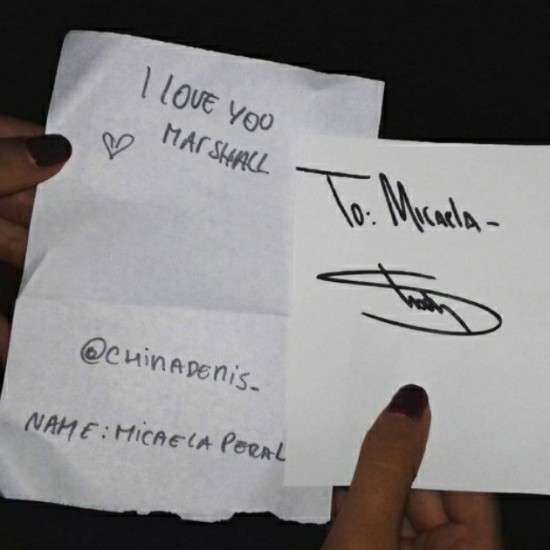 I LOVE YOU
MArSHALL
@CHINADENIS_
NAME: MICAELA PERAL
To: Micaela -